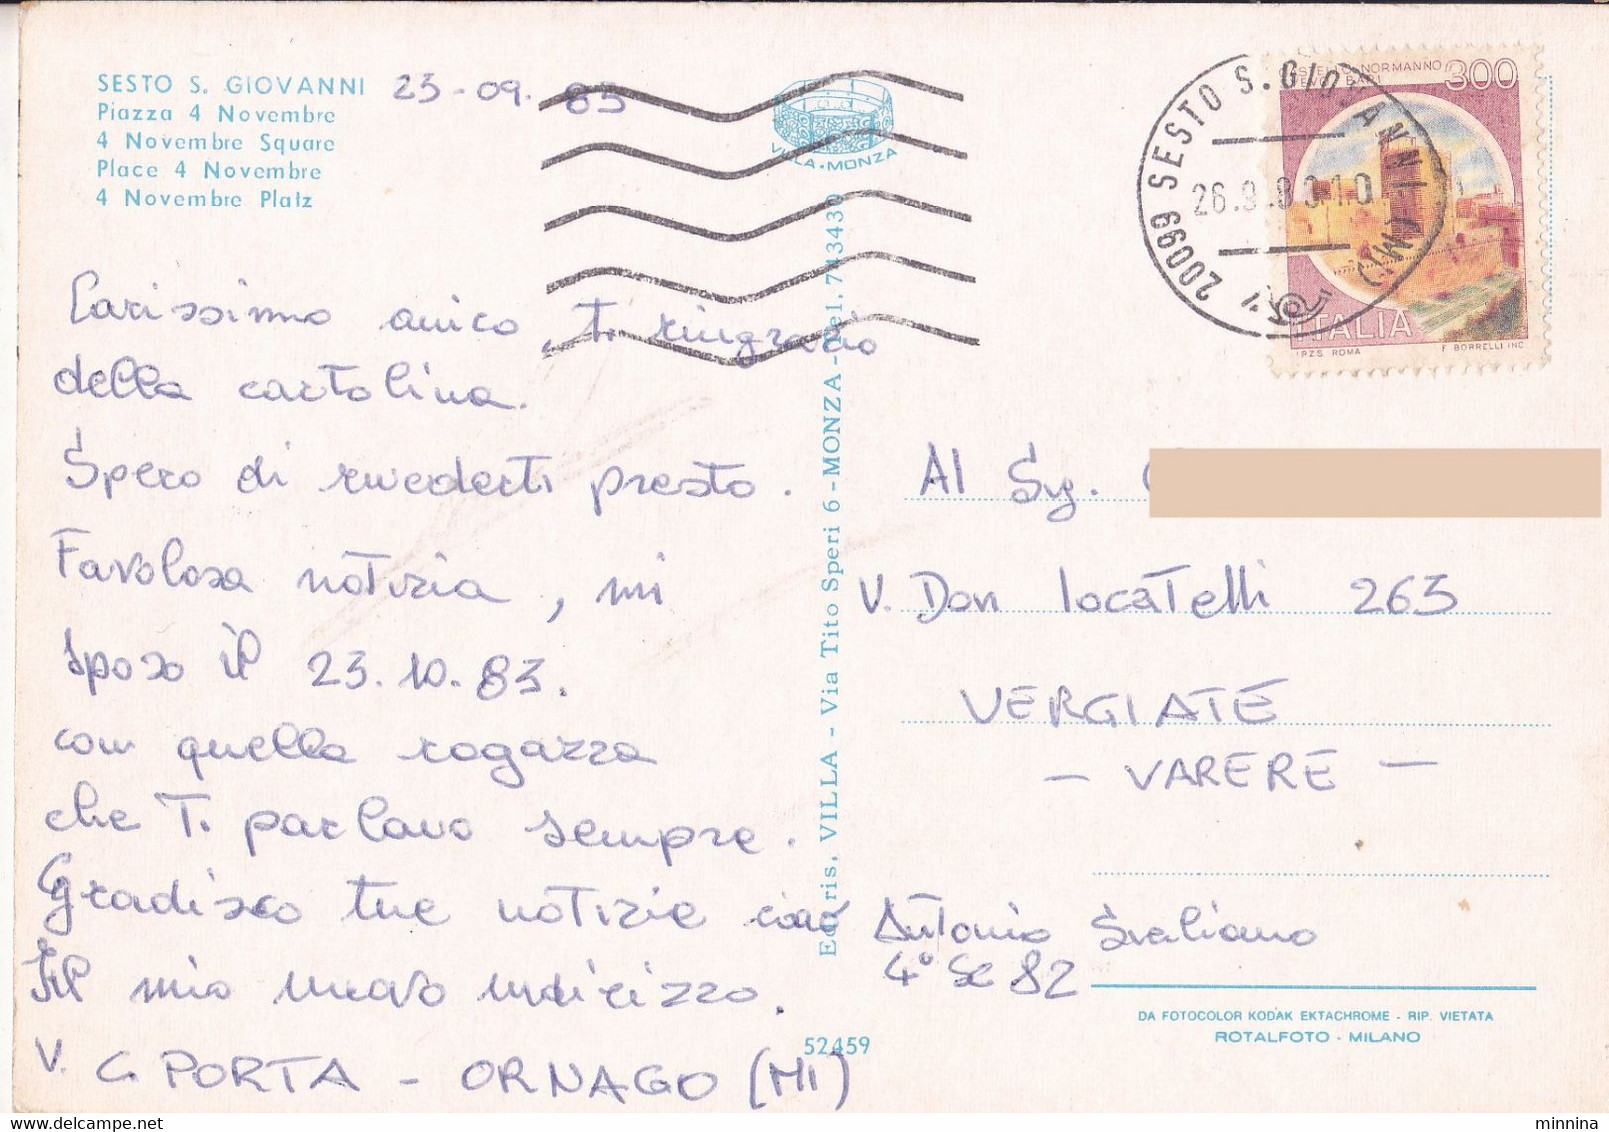 SESTO S. GIOVANNI
Piazza 4 Novembre
4 Novembre Square
Place 4 Novembre
4 Novembre Platz
23-09.83
VILLA-MONZA
20099 SESTO S. GIOVANNI (MI)
CASTELLO NORMANNO
SVEVO BARI
300
ITALIA
I.P.Z.S. ROMA
F. BORRELLI INC.
Carissimo amico, ti ringrazio
della cartolina.
Spero di rivederti presto.
Favolosa notizia, mi
sposo il 23.10.83.
con quella ragazza
che Ti parlavo sempre.
Gradisco tue notizie ciao
Il mio nuovo indirizzo.
V. C. PORTA - ORNAGO (MI)
Antonio
4° Sc 82
Ediz. ris. VILLA - Via Tito Speri 6 - MONZA - Tel. 743439
Al Sig.
V. Don locatelli 263
VERGIATE
- VARERE -
52459
DA FOTOCOLOR KODAK EKTACHROME - RIP. VIETATA
ROTALFOTO - MILANO
minnina